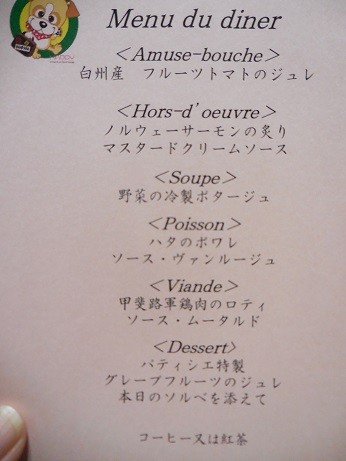 Menu du diner
<Amuse-bouche>
白州産 フルーツトマトのジュレ
<Hors-d'oeuvre>
ノルウェーサーモンの炙り
マスタードクリームソース
<Soupe>
野菜の冷製ポタージュ
<Poisson>
ハタのポワレ
ソース・ヴァンルージュ
<Viande>
甲斐路軍鶏肉のロティ
ソース・ムータルド
<Dessert>
パティシエ特製
グレープフルーツのジュレ
本日のソルベを添えて
コーヒー又は紅茶